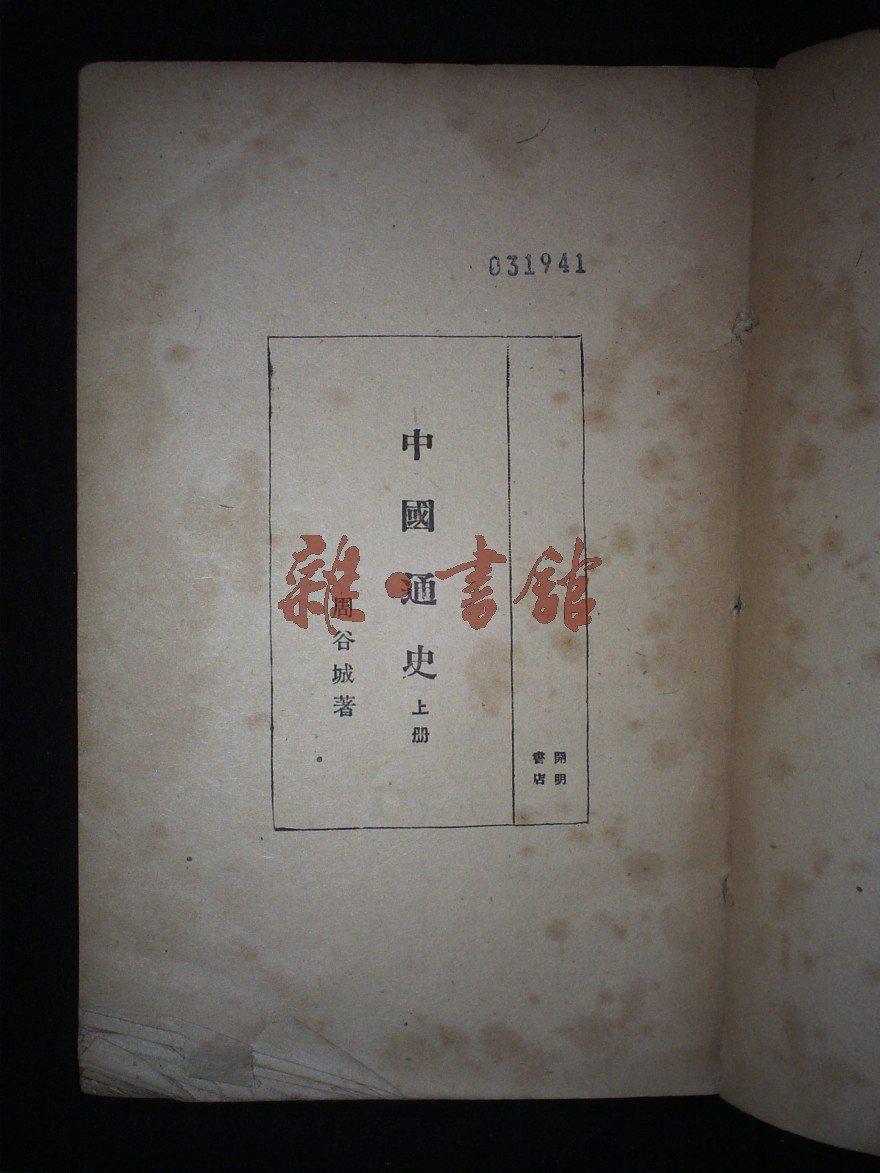 031941
開明
書店
中國通史 上册
周谷城著
雜·書館